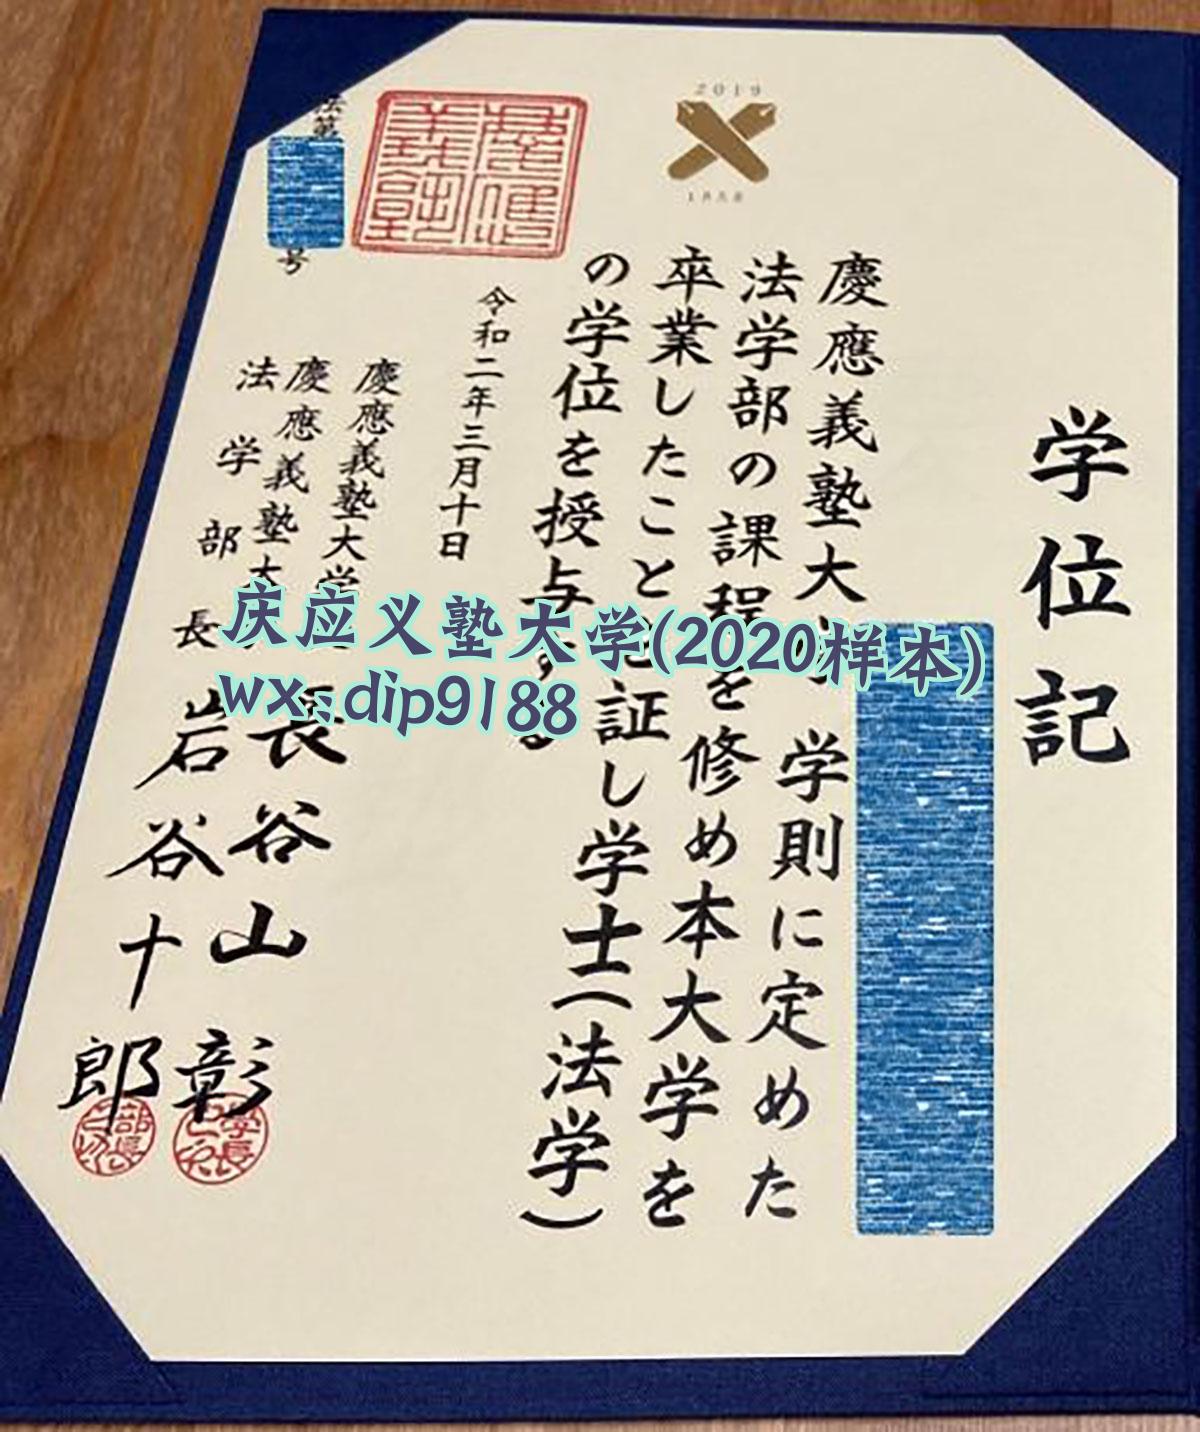 学位記
慶應義塾大
学則に定めた
法学部の課程を修め本大学を
卒業したことを証し学士(法学)
の学位を授与する
令和二年三月十日
慶應義塾大学
長谷山彰
慶應義塾大
法学部長
岩谷十郎
法第
号
慶應義塾
2019
学長
部長
庆应义塾大学(2020样本)
wx:dip9188